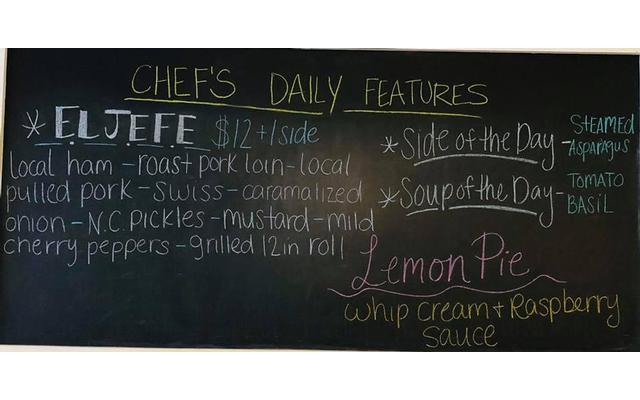 CHEF'S DAILY FEATURES
* EL JEFE $12 + 1 side
local ham - roast pork loin - local
pulled pork - swiss - caramalized
onion - N.C. PICKLES - mustard - mild
cherry peppers - grilled 12 in roll
* Side of the Day - STEAMED
Asparagus
* Soup of the Day - TOMATO
BASIL
Lemon Pie
whip cream + Raspberry
sauce